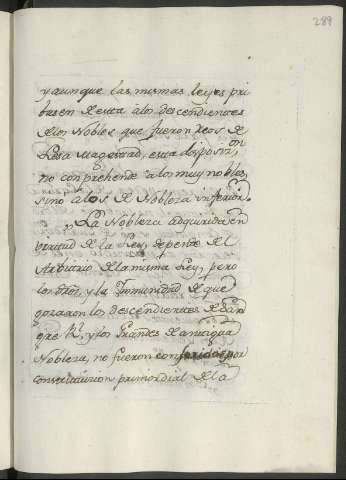 289
y aunque las mismas leyes pri
basen de esta a los descendientes
de los Nobles que fueron Reos de
Lesa Magestad, esta disposizion
no conprehende a los muy nobles,
sino a los de Nobleza inferior.
La Nobleza adquirida en
virtud de la Ley, depende del
Arbitrio de la misma Ley, pero
los dros, y la Inmunidad de que
gozaron los descendientes de San
gre Rl, y los Grandes de antigua
Nobleza, no fueron conferidos por
constitucion primordial de la